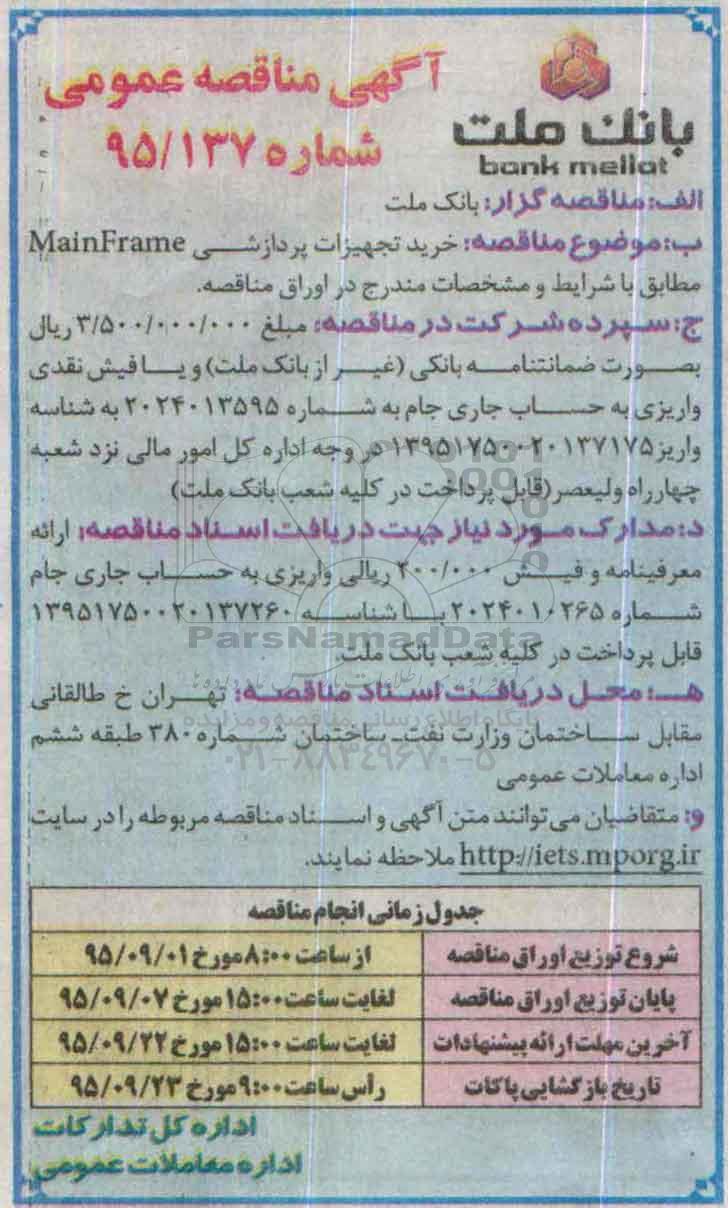 آگهی مناقصه عمومی
شماره ۹۵/۱۳۷
بانک ملت
bank mellat
الف: مناقصه گزار: بانک ملت
ب: موضوع مناقصه: خرید تجهیزات پردازشی MainFrame
مطابق با شرایط و مشخصات مندرج در اوراق مناقصه.
ج: سپرده شرکت در مناقصه: مبلغ ۳/۵۰۰/۰۰۰/۰۰۰ ریال
بصورت ضمانتنامه بانکی (غیر از بانک ملت) و یا فیش نقدی
واریزی به حساب جاری جام به شماره ۲۰۲۴۰۱۳۵۹۵ به شناسه
واریز ۱۳۹۵۱۷۵۰۰۲۰۱۳۷۱۷۵ در وجه اداره کل امور مالی نزد شعبه
چهارراه ولیعصر(قابل پرداخت در کلیه شعب بانک ملت)
د: مدارک مورد نیاز جهت دریافت اسناد مناقصه: ارائه
معرفینامه و فیش ۲۰۰/۰۰۰ ریالی واریزی به حساب جاری جام
شماره ۲۰۲۴۰۱۰۲۶۵ با شناسه ۱۳۹۵۱۷۵۰۰۲۰۱۳۷۲۶۰
ParsNamadData
قابل پرداخت در کلیه شعب بانک ملت.
هـ: محل دریافت اسناد مناقصه: تهران خ طالقانی
پایگاه اطلاع رسانی مناقصه و مزایده
مقابل ساختمان وزارت نفت ـ ساختمان شماره ۳۸۰ طبقه ششم
۰۲۱-۸۸۳۴۹۶۷۰-۵
اداره معاملات عمومی
و: متقاضیان می‌توانند متن آگهی و اسناد مناقصه مربوطه را در سایت
http://iets.mporg.ir ملاحظه نمایند.
جدول زمانی انجام مناقصه
شروع توزیع اوراق مناقصه از ساعت ۸:۰۰ مورخ ۹۵/۰۹/۰۱
پایان توزیع اوراق مناقصه لغایت ساعت ۱۵:۰۰ مورخ ۹۵/۰۹/۰۷
آخرین مهلت ارائه پیشنهادات لغایت ساعت ۱۵:۰۰ مورخ ۹۵/۰۹/۲۲
تاریخ بازگشایی پاکات رأس ساعت ۹:۰۰ مورخ ۹۵/۰۹/۲۳
اداره کل تدارکات
اداره معاملات عمومی